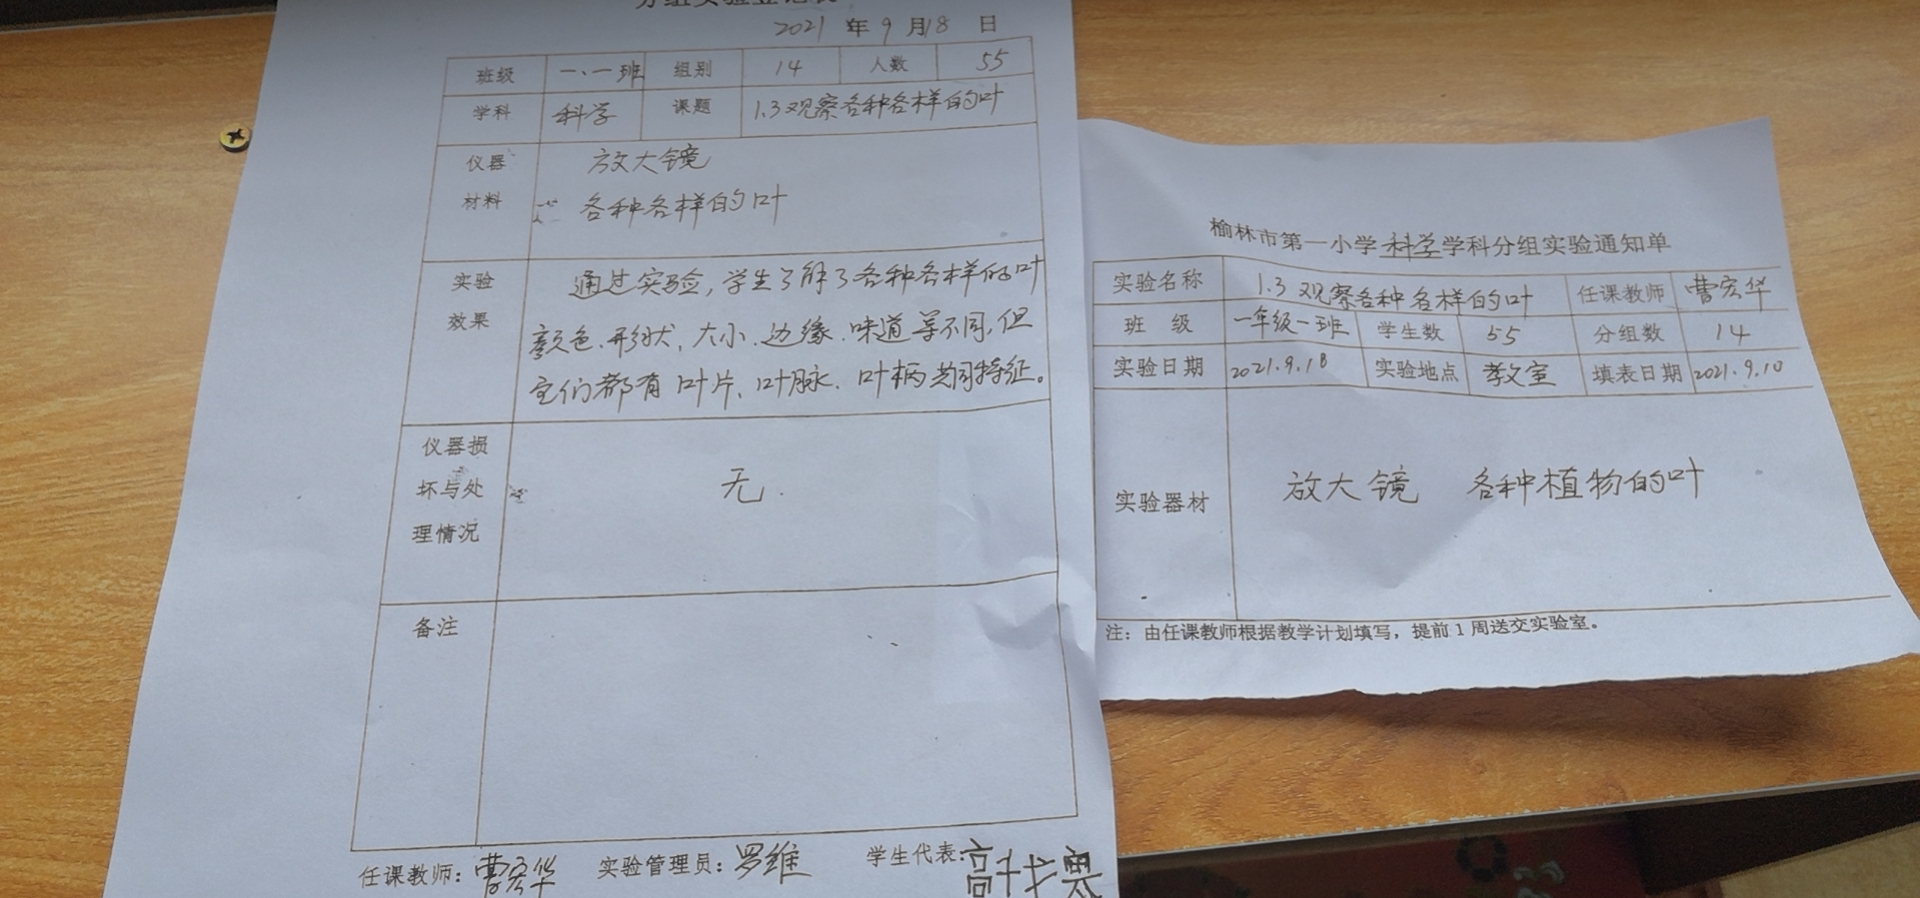 分组实验登记表
2021 年 9 月 18 日
班级 一、一班 组别 14 人数 55
学科 科学 课题 1.3观察各种各样的叶
仪器材料
放大镜
各种各样的叶
实验效果
通过实验,学生了解了各种各样的叶
颜色、形状、大小、边缘、味道等不同,但
它们都有叶片、叶脉、叶柄共同特征。
仪器损坏与处理情况
无
备注
任课教师:曹宏华 实验管理员:罗维 学生代表:
榆林市第一小学科学学科分组实验通知单
实验名称 1.3 观察各种各样的叶 任课教师 曹宏华
班 级 一年级一班 学生数 55 分组数 14
实验日期 2021.9.18 实验地点 教室 填表日期 2021.9.10
实验器材 放大镜 各种植物的叶
注:由任课教师根据教学计划填写,提前1周送交实验室。